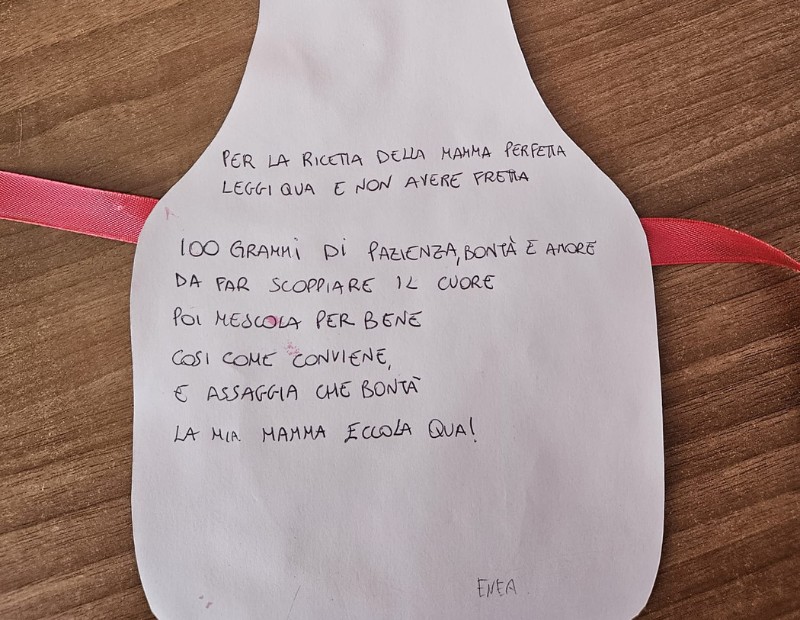 PER LA RICETTA DELLA MAMMA PERFETTA
LEGGI QUA E NON AVERE FRETTA
100 GRAMMI DI PAZIENZA, BONTÀ E AMORE
DA FAR SCOPPIARE IL CUORE
POI MESCOLA PER BENE
COSI COME CONVIENE,
E ASSAGGIA CHE BONTÀ
LA MIA MAMMA ECCOLA QUA!
ENEA